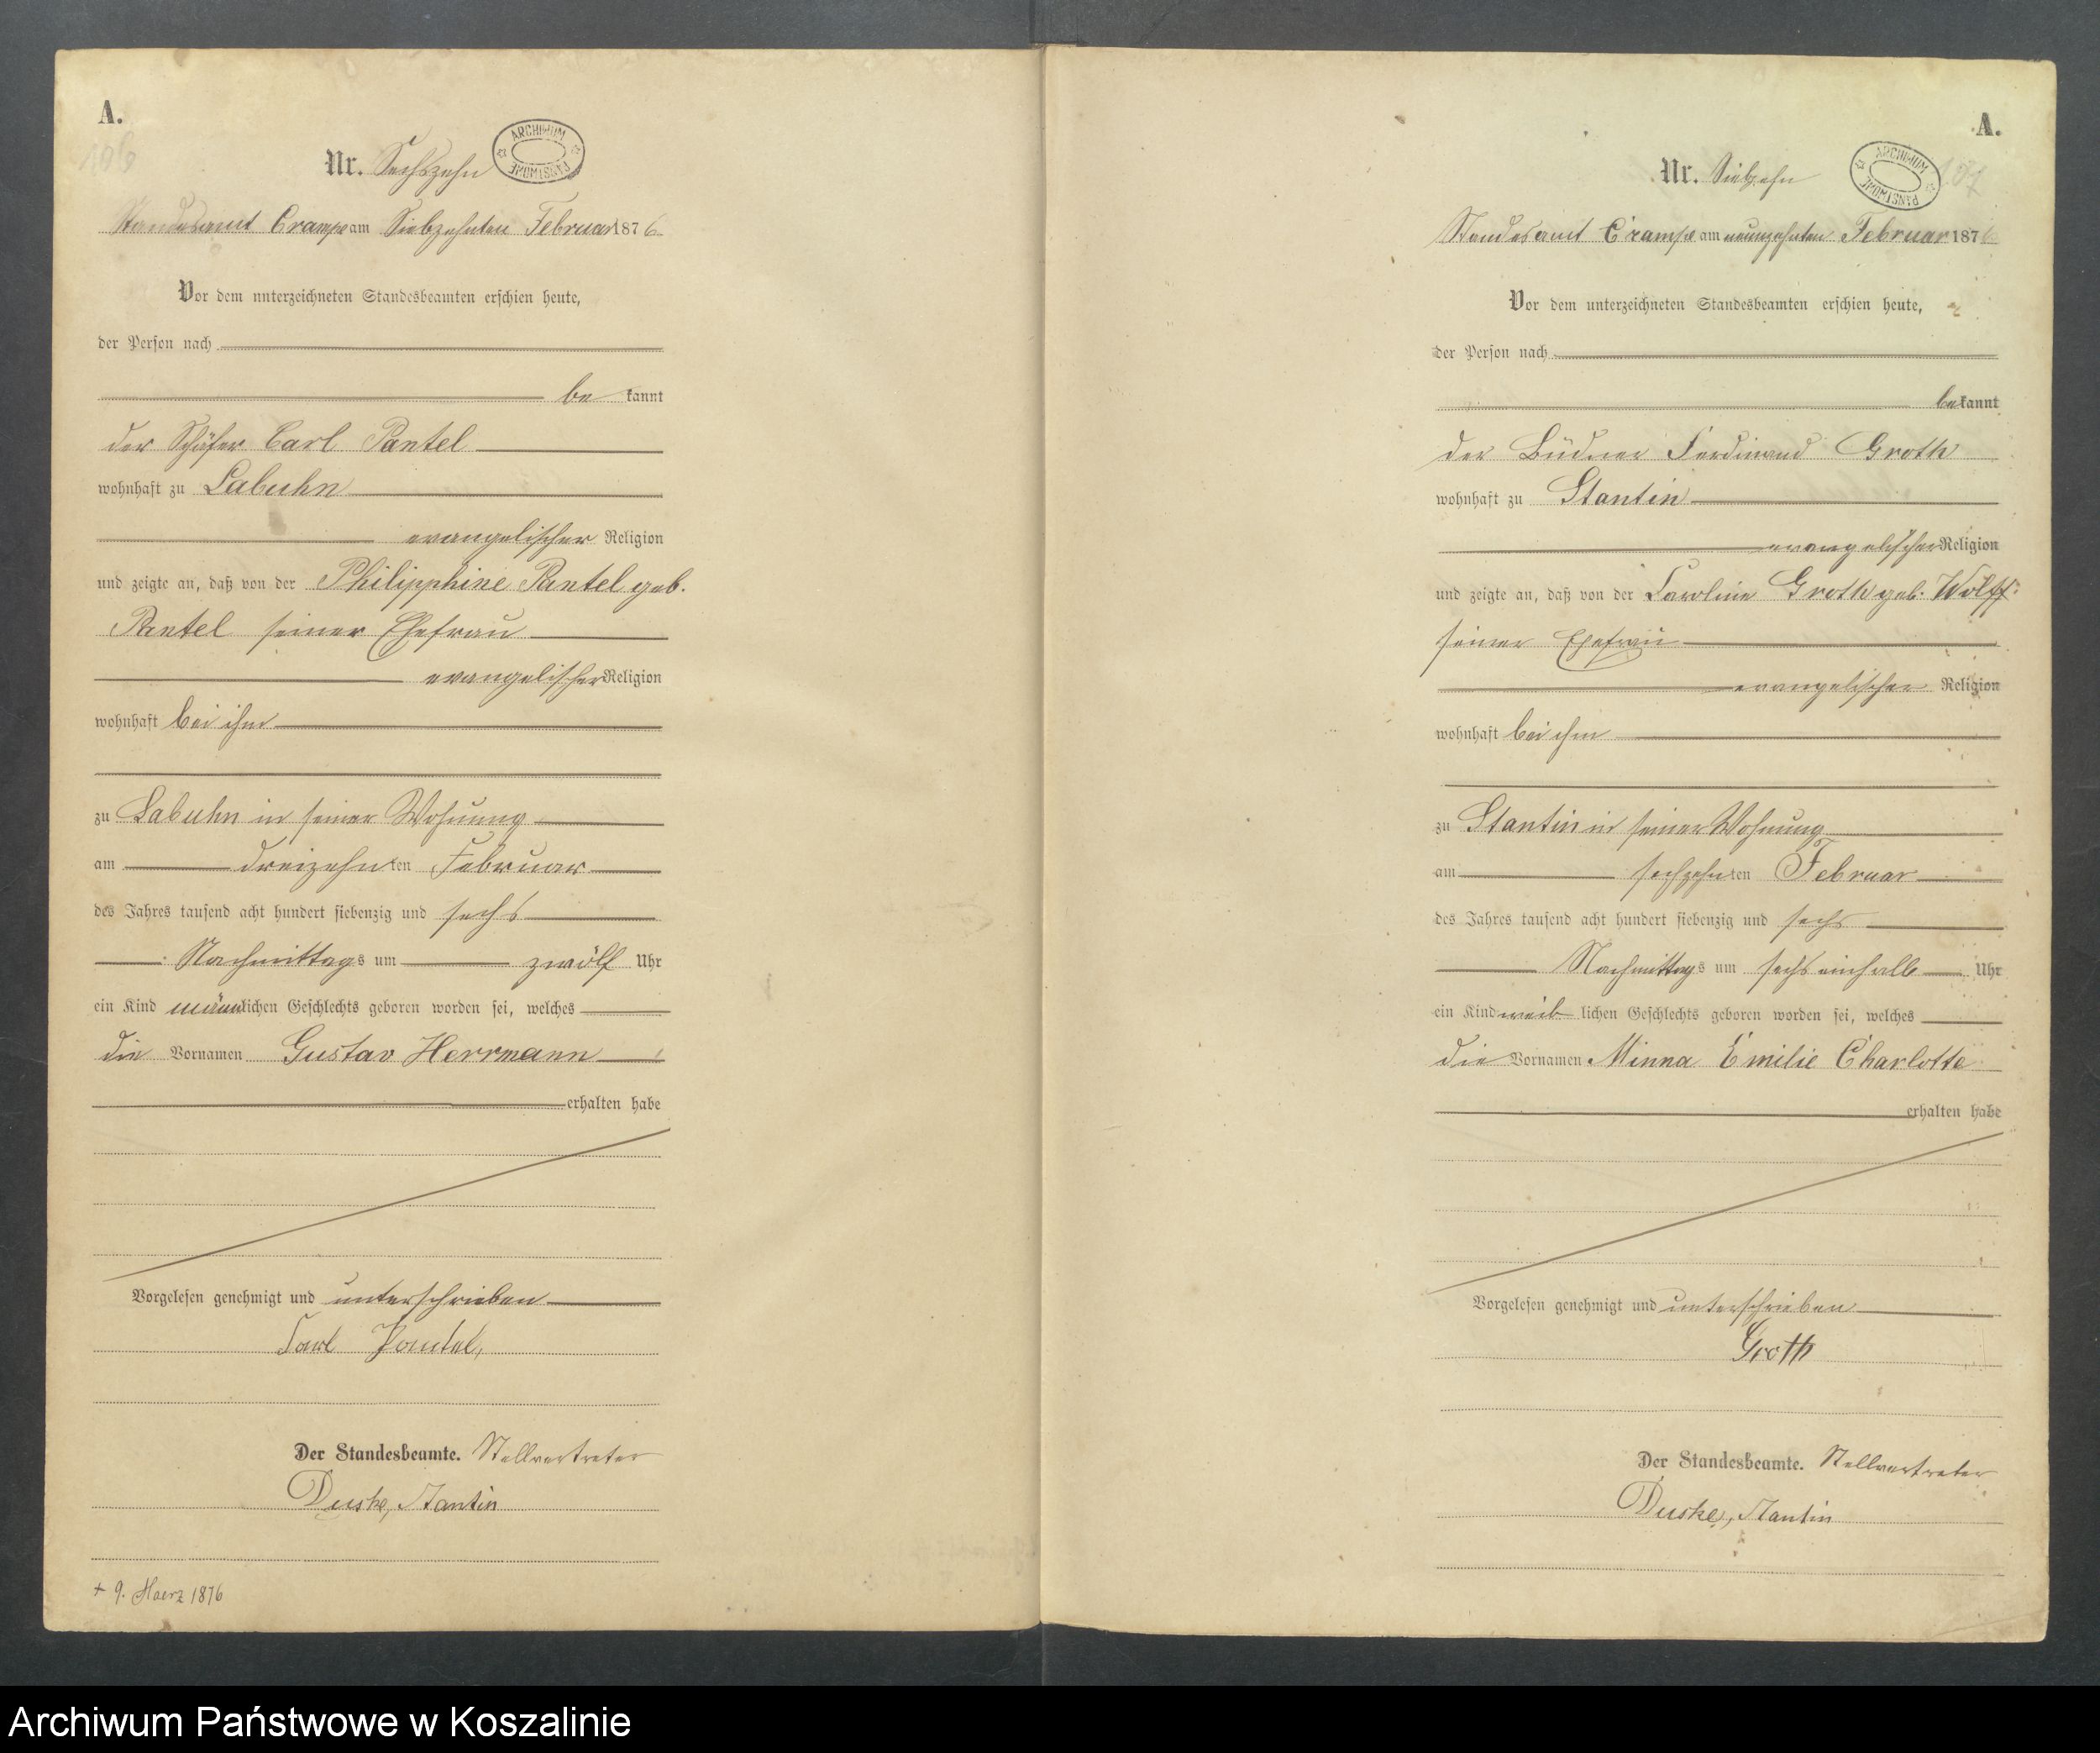 A.
106
Nr. Sechszehn
ARCHIWUM PAŃSTWOWE
Standesamt Crampe am Siebzehnten Februar 1876
Vor dem unterzeichneten Standesbeamten erschien heute,
der Person nach
bekannt
der Schäfer Carl Pantel
wohnhaft zu Labuhn
evangelischer Religion
und zeigte an, daß von der Philipphine Pantel geb.
Pantel seiner Ehefrau
evangelischer Religion
wohnhaft bei ihm
zu Labuhn in seiner Wohnung
am dreizehnten Februar
des Jahres tausend acht hundert siebenzig und sechs
Nachmittags um zwölf Uhr
ein Kind männlichen Geschlechts geboren worden sei, welches
die Vornamen Gustav Herrmann
erhalten habe
Vorgelesen genehmigt und unterschrieben
Carl Pantel,
Der Standesbeamte. Stellvertreter
Duske, Stantin
+ 9. Maerz 1876
A.
107
Nr. Siebzehn
ARCHIWUM PAŃSTWOWE
Standesamt Crampe am neunzehnten Februar 1876
Vor dem unterzeichneten Standesbeamten erschien heute,
der Person nach
bekannt
der Büdner Ferdinand Groth
wohnhaft zu Stantin
evangelischer Religion
und zeigte an, daß von der Caroline Groth geb. Wolff
seiner Ehefrau
evangelischer Religion
wohnhaft bei ihm
zu Stantin in seiner Wohnung
am sechzehnten Februar
des Jahres tausend acht hundert siebenzig und sechs
Nachmittags um sechs einhalb Uhr
ein Kind weiblichen Geschlechts geboren worden sei, welches
die Vornamen Minna Emilie Charlotte
erhalten habe
Vorgelesen genehmigt und unterschrieben
Groth
Der Standesbeamte. Stellvertreter
Duske, Stantin
Archiwum Państwowe w Koszalinie